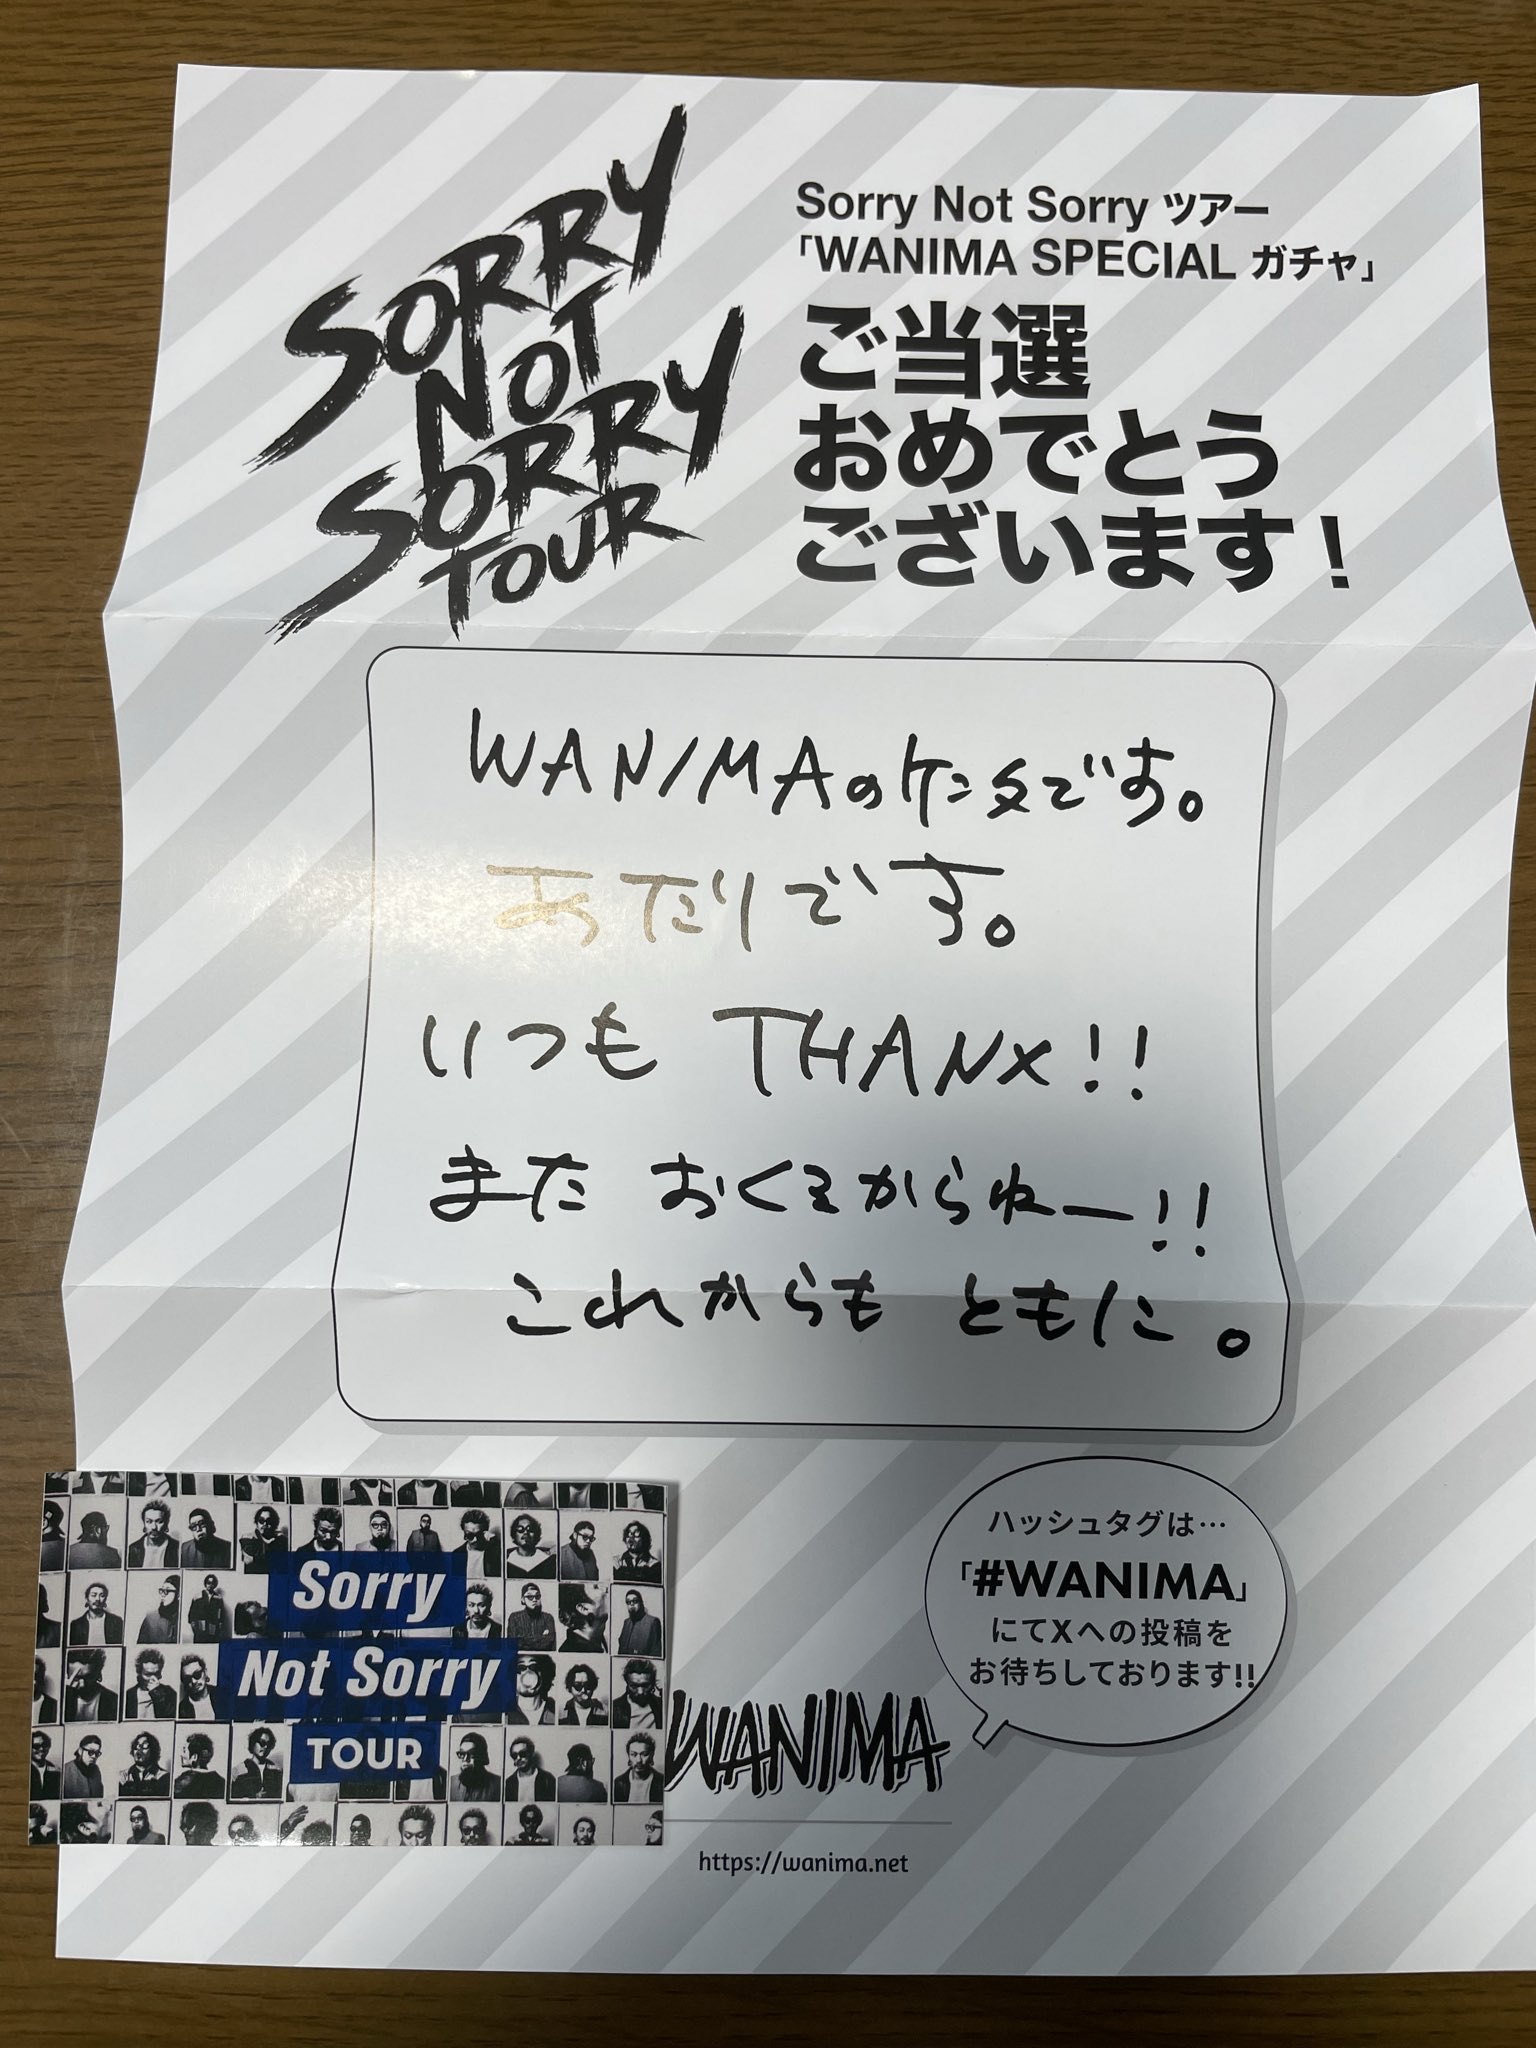 SORRY
NOT
SORRY
TOUR
Sorry Not Sorry ツアー
「WANIMA SPECIAL ガチャ」
ご当選
おめでとう
ございます！
WANIMAのケンタです。
あたりです。
いつも THANX!!
また おくるからねー!!
これからも ともに。
ハッシュタグは…
「#WANIMA」
にてXへの投稿を
お待ちしております!!
Sorry
Not Sorry
TOUR
WANIMA
https://wanima.net